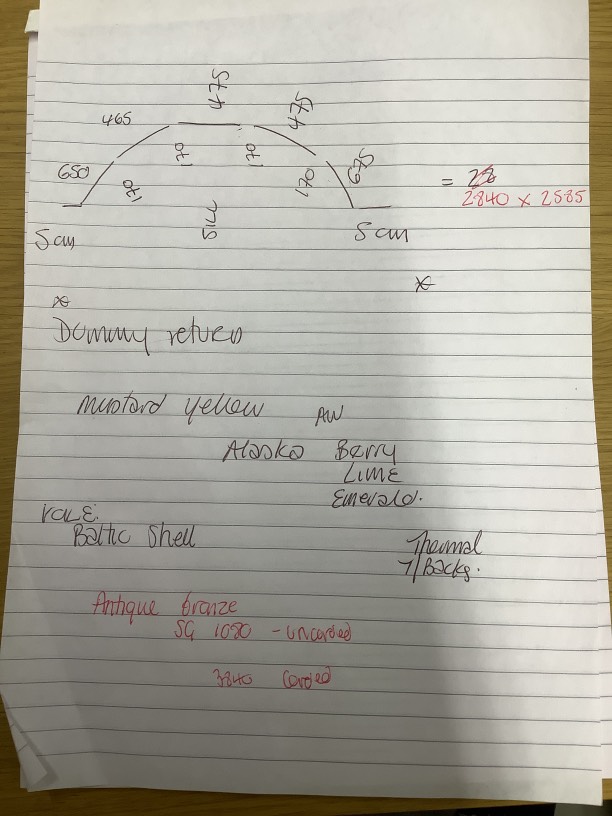 475
465
475
170
170
650
675
170
170
= 28
2840 x 2585
SILL
5 cm
5 cm
Dummy return
Mustard yellow AW
Alaska Berry
Lime
Emerald.
VOLE.
Baltic Shell
Thermal
T/Backs.
Antique bronze
SG 1080 - uncorded
3840 Corded